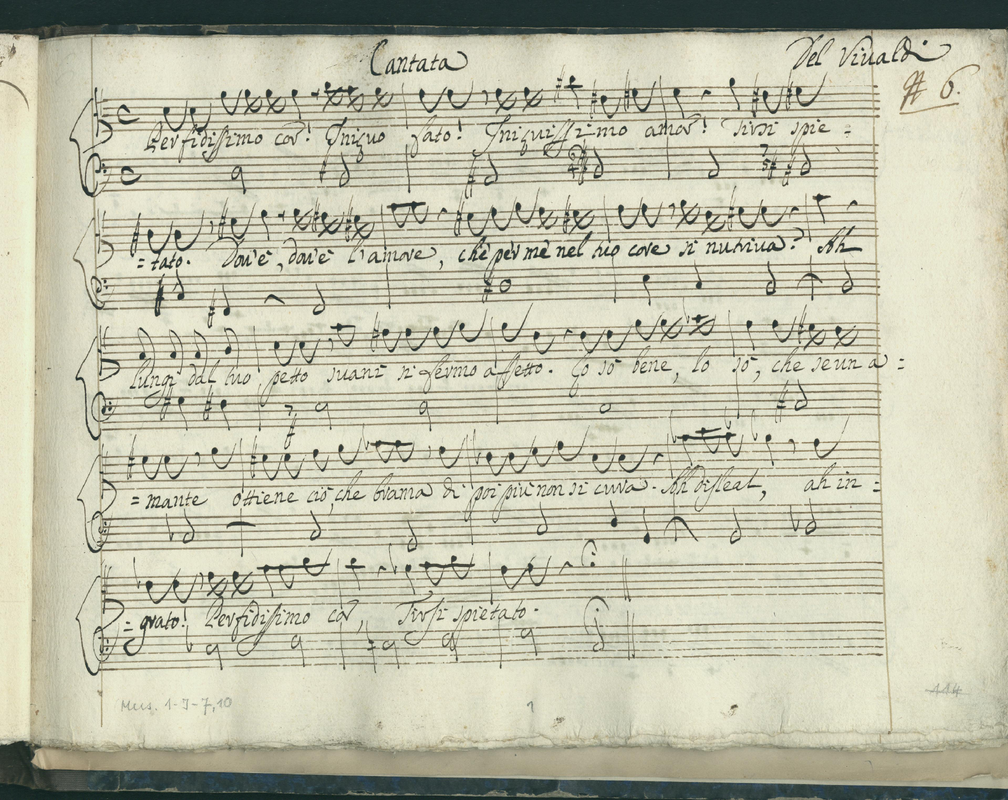 Cantata
Del Vivaldi
# 6.
Perfidissimo cor! Iniquo fato! Iniquissimo amor! Tirsi spie =
= tato. Dov'è, dov'è l'amore, che per mè nel tuo core si nutriva? Ah
lungi dal tuo petto svanì sì fermo affetto. Lo sò bene, lo sò, che se un a =
= mante ottiene ciò, che brama di poi più non si cura. Ah disleal, ah in =
= grato! Perfidissimo cor, Tirsi spietato.
Mus. 1-J-7,10
1